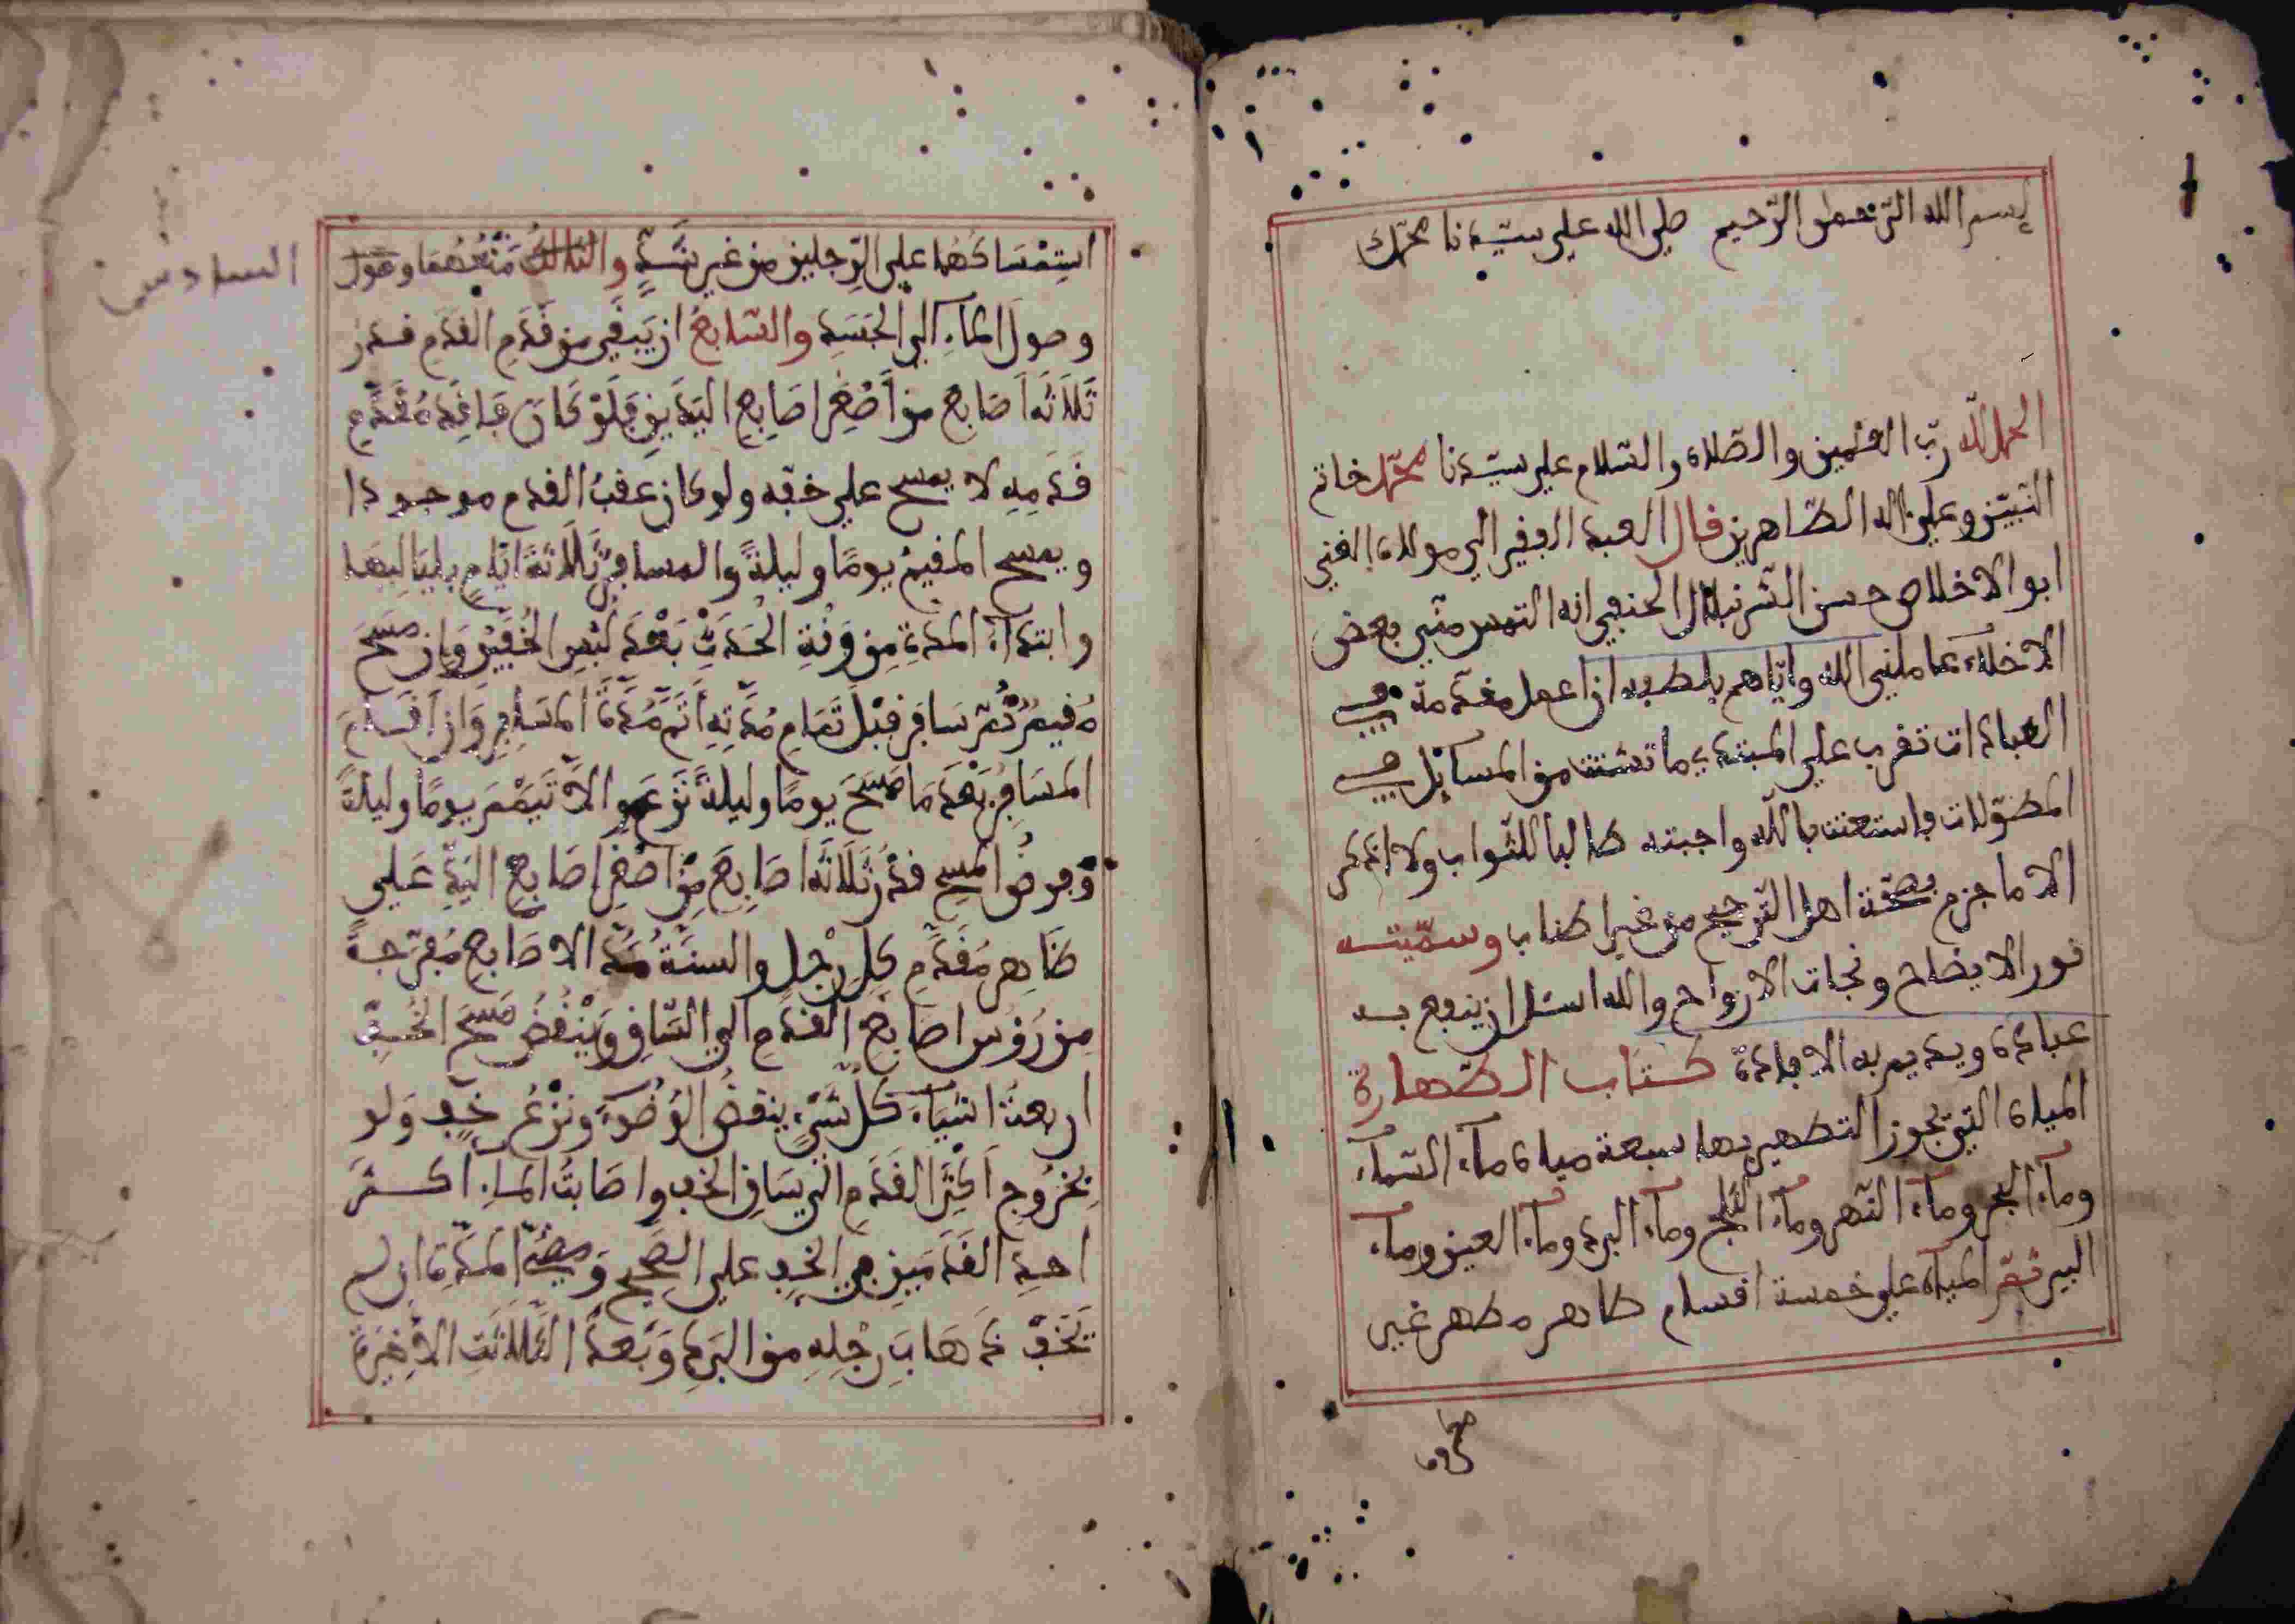 بسم الله الرّحمٰن الرّحيم صلى الله على سيّدنا محمّد
الحمد لله ربّ العٰلمين والصّلاة والسّلام على سيّدنا محمّد خاتم
النّبيّن وعلى اله الطّاهرين قال العبد الفقير الى مولاه الغني
ابو الاخلاص حسن الشّرنبلال الحنفي انه التمس منّي بعض
الاخلاء عاملني الله وايّاهم بلطفه ان اعمل مقدّمة في
العبادات تقرب على المبتدي ما تشتت من المسائل في
المطوّلات فاستعنت بالله واجبته طالبا للثّواب ولا اذكر
الا ما جزم بصحّته اهل التّرجيح من غير اطناب وسمّيته
نور الايضاح ونجات الارواح والله اسئل ان ينفع به
عباده ويديم به الافادة كتاب الطّهارة
المياه التي يجوز التطهير بها سبعة مياه ماء السّماء
وماء البحر وماء النّهر وماء الثلج وماء البرد وماء العين وماء
البير ثمّ المياه على خمسة اقسام طاهر مطهر غير
استِمْسَاكُهُما على الرّجلين من غير شَدٍّ والثالثُ مَنْعُهُمَا وصول
السادس
وصولَ الماءِ الى الجَسَدِ والسّابعُ ان يَبْقَى من قَدَمِ القدَمِ قدر
ثَلَاثَة اَصَابع من اَصْغَرِ اصَابِع اليَدَينِ فَلَوْ كان فَاقِدَ مُقَدَّمِ
قَدَمِهِ لا يمسح على خفّه ولو كان عَقبُ القدم موجودا
ويمسح المقيمُ يومًا وليلةً والمسافِرُ ثَلَاثةَ ايّامٍ بليَاليهَا
وابتداءُ المدّةِ مِن وَقْتِ الحَدَثِ بَعْدَ لُبْسِ الخُفَّيْنِ وَاِن مسَحَ
مُقيمٌ ثُمّ سَافرَ قبْلَ تَمَامِ مُدّتِهِ اَتَمّ مُدّةَ المسَافِرِ وَان اَقَامَ
المسَافِرُ بَعْدَ مَا مَسَحَ يومًا وليلةً نَزَعَ والاّ تَيَمْمَ يومًا وليلةً
وَفرضُ المسحِ قدْرُ ثَلَاثَة اَصَابِعَ مِنْ اَصْغَرِ اصَابعِ اليَدِ عَلى
ظَاهِر مُقَدَّمِ كلِ رِجْلٍ والسنَّةُ مَدُّ الاصَابع مُفَرّجةً
مِن رَؤُس اصَابِع القدَمِ الى السّاقِ وَيَنْقُضُ مَسحَ الخُفِّ
اربعةُ اشيَاء كلّ شَيْءٍ ينقضُ الوُضُوءَ وَنَزْعُ خُفٍ وَلو
بِخُرُوجِ اَكْثَرِ القَدَمِ الى سَاقِ الخفِ واصَابتُ الماءِ اكثَر
احدِ القَدَمَينِ في الخُفِ على الصَحِيح وَمضيُّ المدّةِ ان لم
يَخَفْ ذَهَابَ رِجْلِهِ من البَردِ وَبَعدَ الثَّلَاثَتِ الاَخِيرَةِ